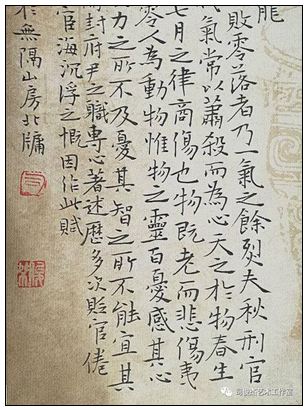 龍
敗零落者乃一氣之餘烈夫秋刑官
氣常以蕭殺而為心天之於物春生
七月之律商傷也物既老而悲傷夷
零人為動物惟物之靈百憂感其心
力之所不及憂其智之所不能宜其
封府尹之職專心著述歷多次貶官倦
官海沉浮之慨因作此賦
於無隅山房北牖
艺术工作室